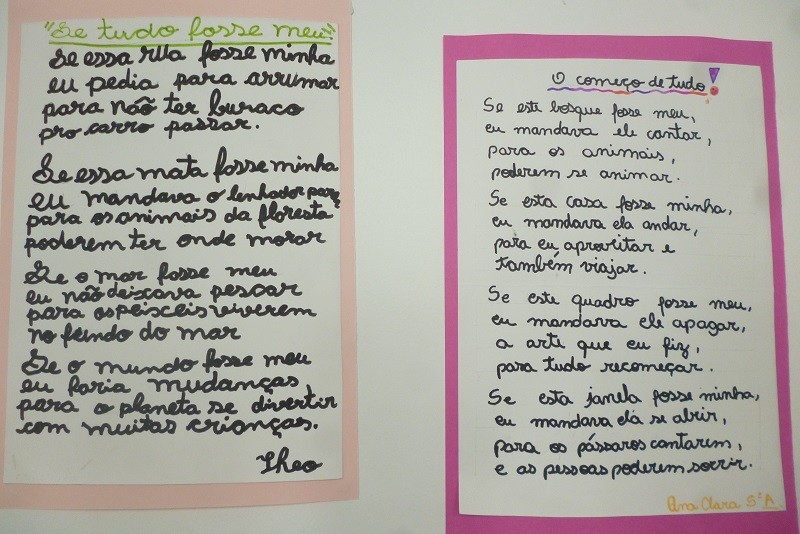 "Se tudo fosse meu"
Se essa rua fosse minha
eu pedia para arrumar
para não ter buraco
pro carro passar.
Se essa mata fosse minha
eu mandava o lenhador para
para os animais da floresta
poderem ter onde morar
Se o mar fosse meu
eu não deixava pescar
para os peisceis viverem
no fundo do mar
Se o mundo fosse meu
eu faria mudanças,
para o planeta se divertir
com muitas crianças.
Theo
O começo de tudo!
Se este bosque fosse meu,
eu mandava ele cantar,
para os animais,
poderem se animar.
Se esta casa fosse minha,
eu mandava ela andar,
para eu aproveitar e
também viajar.
Se este quadro fosse meu,
eu mandava ele apagar,
a arte que eu fiz,
para tudo recomeçar.
Se esta janela fosse minha,
eu mandava ela se abrir,
para os pássaros cantarem,
e as pessoas poderem sorrir.
Ana Clara 5°A